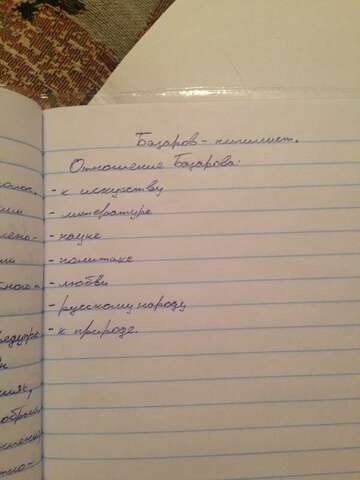 Базаров - нигилист.
Отношение Базарова:
- к искусству
- литературе
- науке
- политике
- любви
- русскому народу
- к природе.